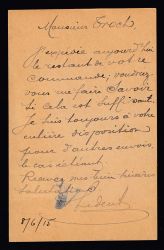 Monsieur Croch
J'expédie aujourd'hui
le restant de votre
commande; voudrez-
vous me faire savoir
si cela est suffisant.
Je suis toujours à votre
entière disposition
pour d'autres envois,
le cas échéant.
Recevez mes bien sincères
salutations
Ledent
8/6/15